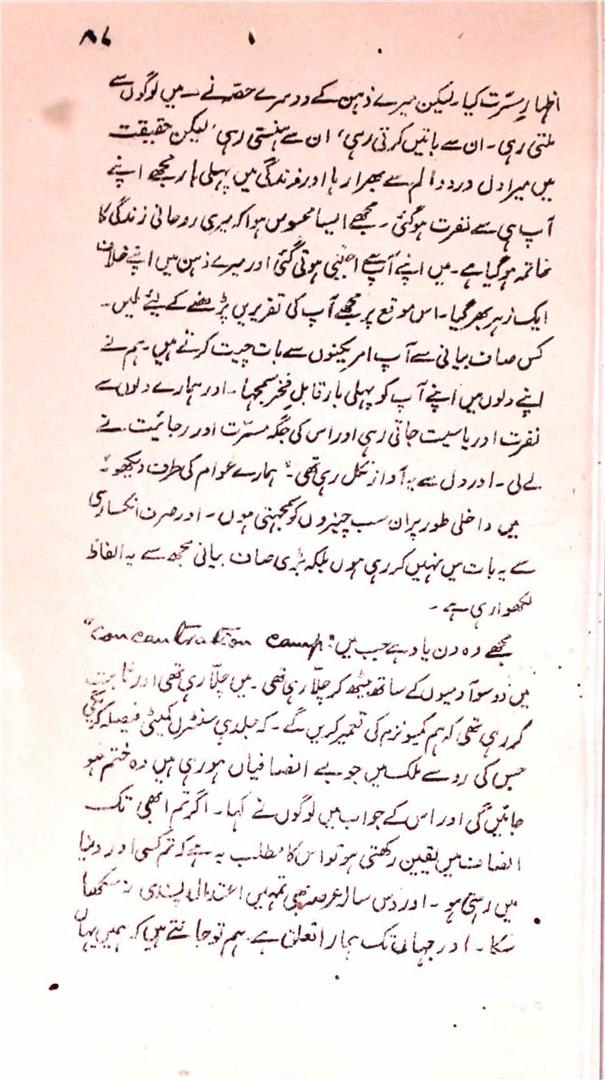 ۸۷
اظہارِ مسرّت کیا۔ لیکن میرے ذہن کے دوسرے حصّہ نے ۔۔ میں لوگوں سے
ملتی رہی۔ ان سے باتیں کرتی رہی، ان سے ہنستی رہی، لیکن حقیقت
میں میرا دل درد و الم سے بھرا رہا اور زندگی میں پہلی بار مجھے اپنے
آپ ہی سے نفرت ہوگئی۔ مجھے ایسا محسوس ہوا کہ میری روحانی زندگی کا
خاتمہ ہوگیا ہے۔ میں اپنے آپ سے اجنبی ہوتی گئی اور میرے ذہن میں اپنے خلاف
ایک زہر بھر گیا۔ اس موقع پر مجھے آپ کی تقریریں پڑھنے کے لیئے ملیں۔
کس صاف بیانی سے آپ امریکنوں سے بات چیت کرتے ہیں۔ ہم نے
اپنے دلوں میں اپنے آپ کو پہلی بار قابلِ فخر سمجھا۔ اور ہمارے دلوں سے
نفرت اور یاسیت جاتی رہی اور اس کی جگہ مسرّت اور رجائیت نے
لے لی۔ اور دل سے یہ آواز نکل رہی تھی۔ "ہمارے عوام کی طرف دیکھو"۔
میں داخلی طور پر ان سب چیزوں کو سمجھتی ہوں۔ اور صرف انکساری
سے یہ بات میں نہیں کر رہی ہوں بلکہ بڑی صاف بیانی مجھ سے یہ الفاظ
لکھوا رہی ہے۔
مجھے وہ دن یاد ہے جب میں "concantration camp"
میں دو سو آدمیوں کے ساتھ بیٹھ کر چلّا رہی تھی۔ میں چلّا رہی تھی اور ثابت
کر رہی تھی کہ ہم کمیونزم کی تعمیر کریں گے۔ کہ جلد ہی سنٹرل کمیٹی فیصلہ کریگی
جس کی رو سے ملک میں جو بے انصافیاں ہو رہی ہیں وہ ختم ہو
جائیں گی اور اس کے جواب میں لوگوں نے کہا۔ اگر تم ابھی تک
انصاف میں یقین رکھتی ہو تو اس کا مطلب یہ ہے کہ تم کسی اور دنیا
میں رہتی ہو۔ اور دس سالہ عرصہ بھی تمہیں اعتدال پسندی نہ سکھا
سکا۔ اور جہاں تک ہمارا تعلق ہے۔ ہم تو جانتے ہیں کہ ہمیں یہاں